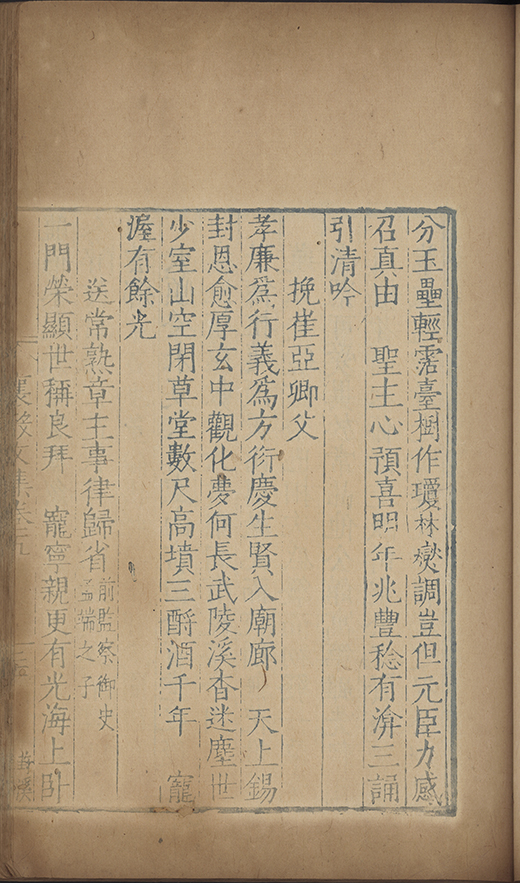 分玉壘輕霑臺樹作瓊林爕調豈但元臣力感
召真由 聖主心預喜明年兆豐稔有渰三誦
引清吟
挽崔亞卿父
孝廉爲行義爲方衍慶生賢入廟廊 天上錫
封恩愈厚玄中觀化夢何長武陵溪杳迷塵世
少室山空閉草堂數尺高墳三酹酒千年 寵
渥有餘光
送常熟章主事律歸省前監察御史孟端之子
一門榮顯世稱良拜 寵寧親更有光海上卧
襄毅文集卷五